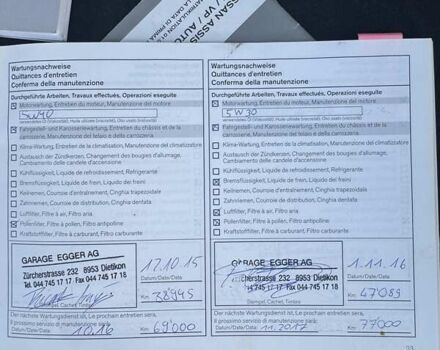 SAN ASSIS
VP / AUTO
IMATRIKULATION 01
LA DATA DI PRIMA
Wartungsnachweise
Quittances d'entretien
Conferma della manutenzione
Durchgeführte Arbeiten, Travaux effectués, Operazioni eseguite
Motorwartung, Entretien du moteur, Manutenzione del motore
5W40
verwendetes Öl (Viskosität), Huile utilisée (viscosité), Olio usato (viscosità)
Fahrgestell- und Karosseriewartung, Entretien du châssis et de la
carrosserie, Manutenzione del telaio e della carrozzeria
Klima-Wartung, Entretien de la climatisation, Manutenzione del climatizzatore
Austausch der Zündkerzen, Changement des bougies d'allumage,
Cambiamento delle candele d'accensione
Kühlflüssigkeit, Liquide de refroidissement, Refrigerante
Bremsflüssigkeit, Liquide de frein, Liquido dei freini
Keilriemen, Courroie d'entraînement, Cinghia trapezoidale
Zahnriemen, Courroie de distribution, Cinghia dentata
Luftfilter, Filtre à air, Filtro aria
Pollenfilter, Filtre à pollen, Filtro antipolline
Kraftstofffilter, Filtre à carburant, Filtro carburante
GARAGE EGGER AG
Zürcherstrasse 232 8953 Dietikon
Tel. 044 745 17 17 Fax 044 745 17 18
17.10.15
Datum/Date/Data
Km 38945
Stempel, Cachet, Timbro
Der nächste Wartungsdienst ist, Le prochain entretien sera,
Il prossimo servizio di manutenzione sarà:
10.16
Datum/Date/Data
Km 69000
Wartungsnachweise
Quittances d'entretien
Conferma della manutenzione
Durchgeführte Arbeiten, Travaux effectués, Operazioni eseguite
Motorwartung, Entretien du moteur, Manutenzione del motore
5W30
verwendetes Öl (Viskosität), Huile utilisée (viscosité), Olio usato (viscosità)
Fahrgestell- und Karosseriewartung, Entretien du châssis et de la
carrosserie, Manutenzione del telaio e della carrozzeria
Klima-Wartung, Entretien de la climatisation, Manutenzione del climatizzatore
Austausch der Zündkerzen, Changement des bougies d'allumage,
Cambiamento delle candele d'accensione
Kühlflüssigkeit, Liquide de refroidissement, Refrigerante
Bremsflüssigkeit, Liquide de frein, Liquido dei freini
Keilriemen, Courroie d'entraînement, Cinghia trapezoidale
Zahnriemen, Courroie de distribution, Cinghia dentata
Luftfilter, Filtre à air, Filtro aria
Pollenfilter, Filtre à pollen, Filtro antipolline
Kraftstofffilter, Filtre à carburant, Filtro carburante
GARAGE EGGER AG
Zürcherstrasse 232 8953 Dietikon
Tel. 044 745 17 17 Fax 044 745 17 18
1.11.16
Datum/Date/Data
Km 47089
Stempel, Cachet, Timbro
Der nächste Wartungsdienst ist, Le prochain entretien sera,
Il prossimo servizio di manutenzione sarà:
11.2017
Datum/Date/Data
Km 77000